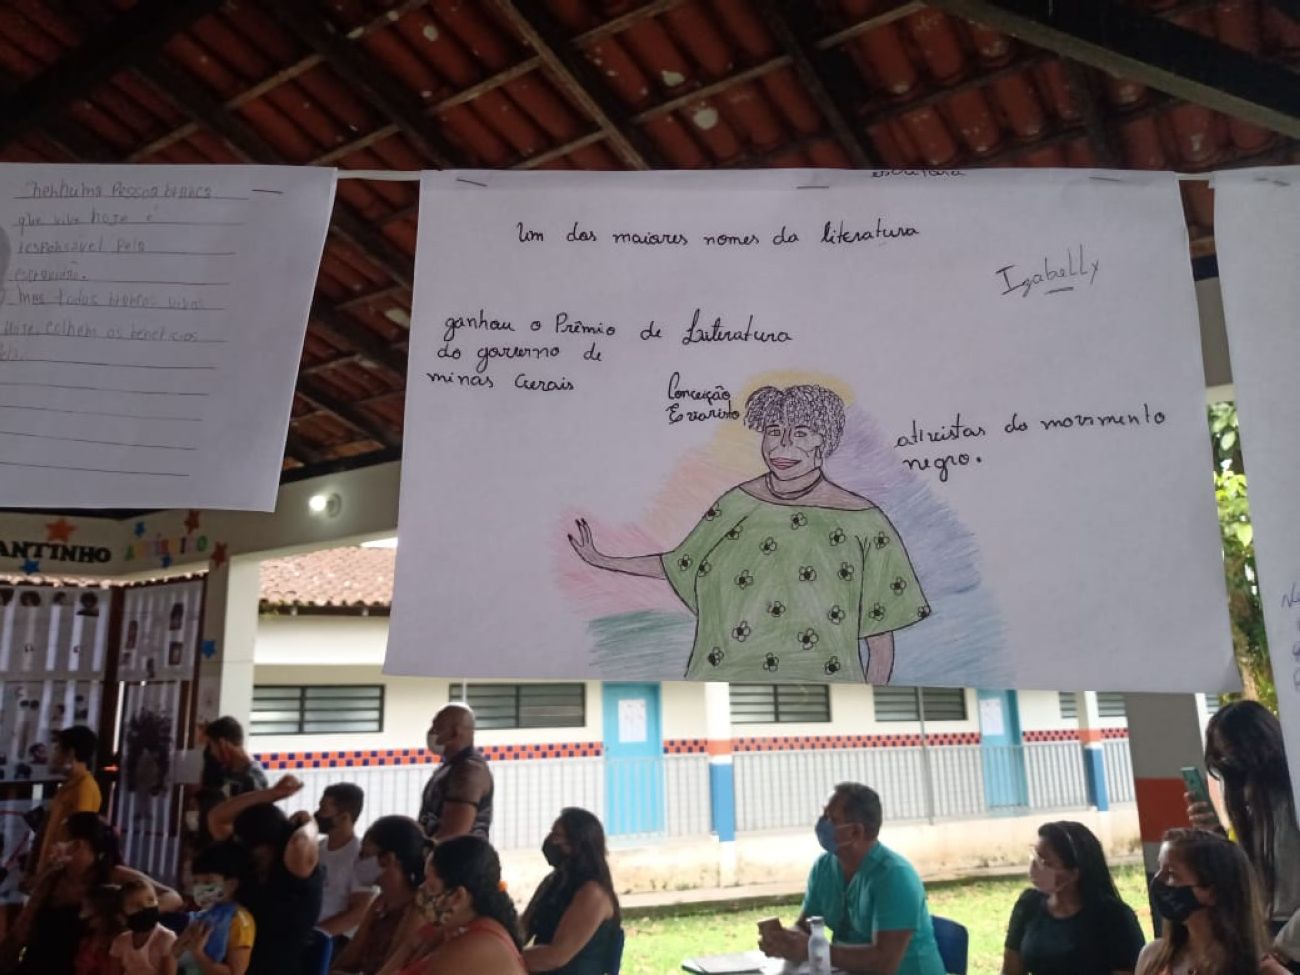 nenhuma pessoa branca
que vive hoje é
responsável pela
escravidão.
Mas todos brancos vivos
hoje colhem os beneficios
escritora
Um dos maiores nomes da literatura
Izabelly
ganhou o Prêmio de Literatura
do governo de
minas Gerais
Conceição
Evaristo
ativistas do movimento
negro.
ANTINHO